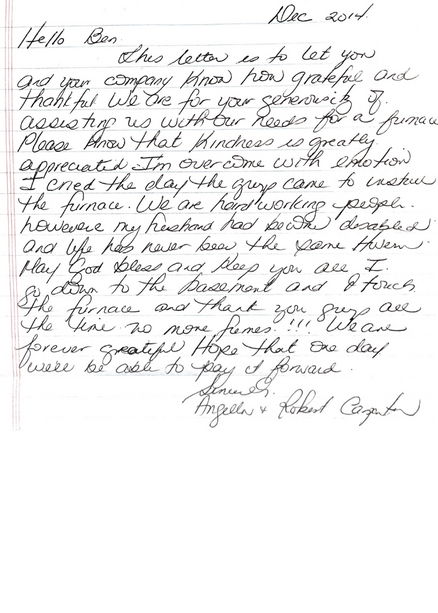 Dec 2014.
Hello Ben.
This letter is to let you
and your company know how grateful and
thankful We are for your generosity of
assisting us with our needs for a furnace
Please know that kindness is greatly
appreciated I'm overcome with emotion
I cried the day the guys came to install
the furnace. We are hard working people.
however my husband had become disabled
and life has never been the same
May God bless and keep you all I
go down to the basement and I touch
the furnace and thank you guys all
the time no more fumes. !!! We are
forever grateful Hope that one day
we'll be able to pay it forward.
Sincerely.
Angella & Robert Carpenter